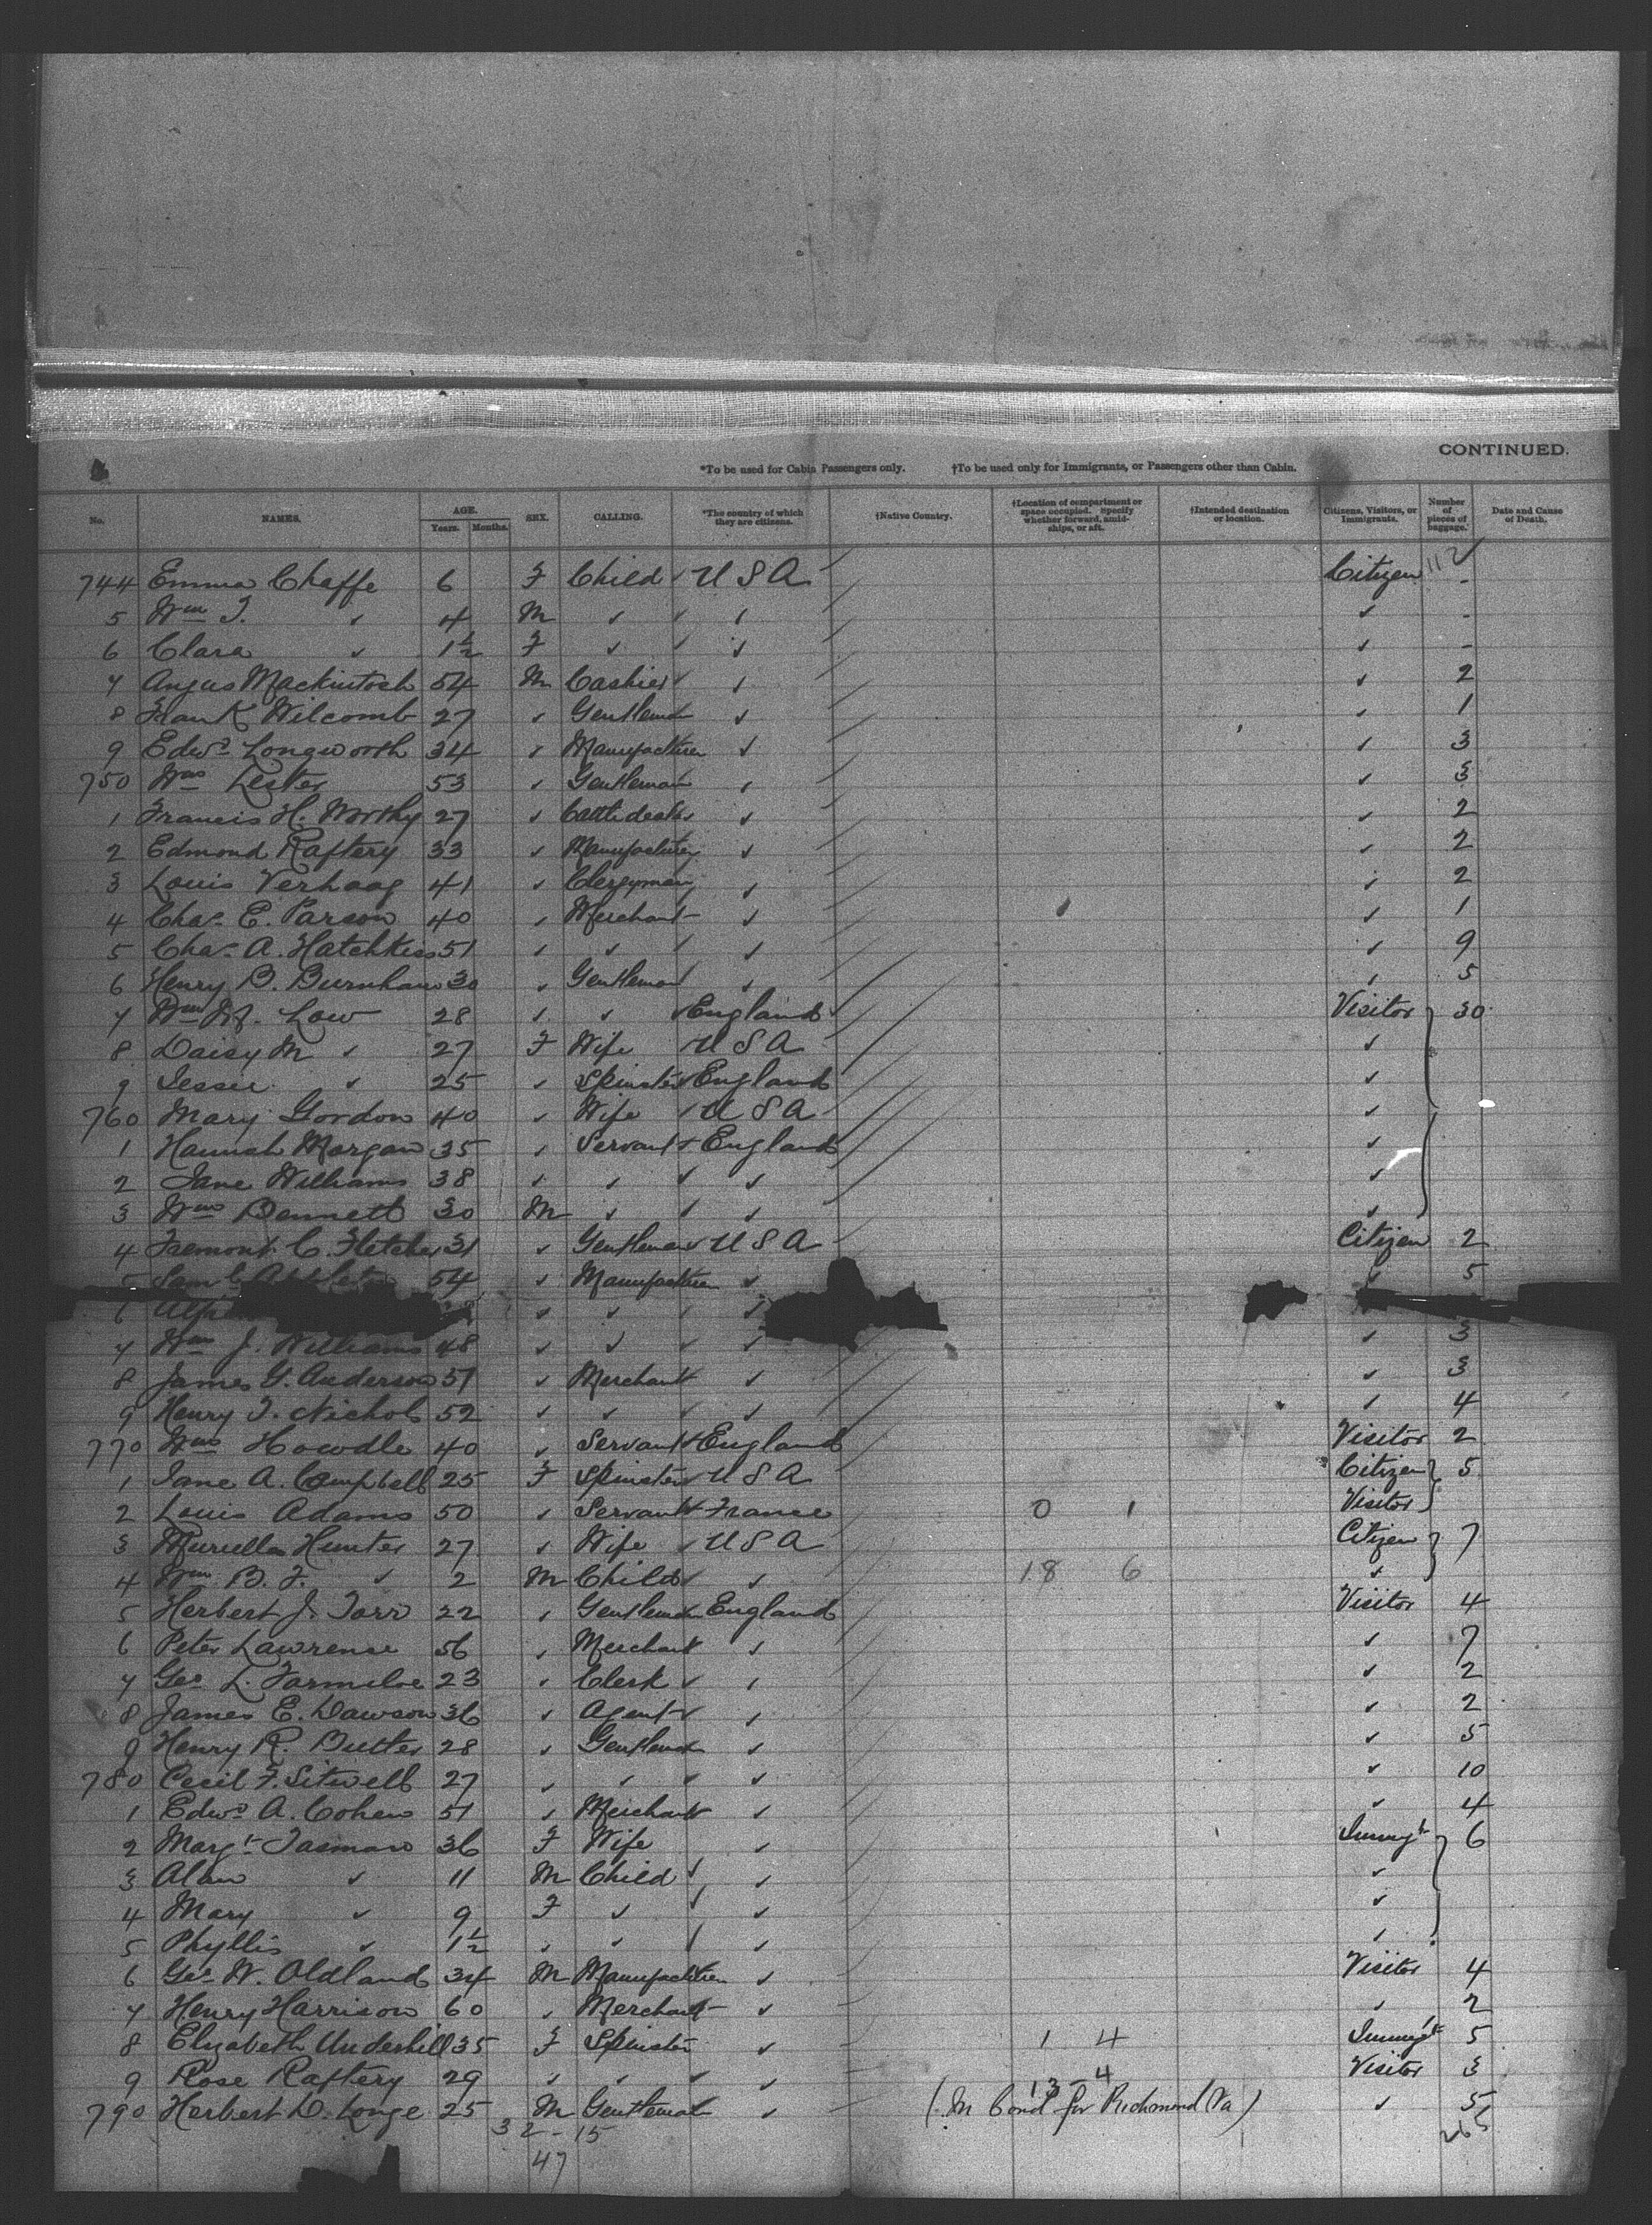 CONTINUED.
*To be used for Cabin Passengers only. †To be used only for Immigrants, or Passengers other than Cabin.
No. NAMES. AGE. Years. Months. SEX. CALLING. *The country of which they are citizens. †Native Country. †Location of compartment or space occupied. Specify whether forward, amidships, or aft. †Intended destination or location. Citizens, Visitors, or Immigrants. Number of pieces of baggage. Date and Cause of Death.
112
744 Emma Chaffe 6 F Child ✓ U S A Citizen -
5 Wm T. ✓ 4 M ✓ ✓ ✓ ✓ -
6 Clara ✓ 1½ F ✓ ✓ ✓ ✓ -
7 Angus Mackintosh 54 M Cashier ✓ ✓ ✓ 2
8 Frank Wilcomb 27 ✓ Gentleman ✓ ✓ 1
9 Edwd Longworth 34 ✓ Manufacturer ✓ ✓ 3
750 Wm Lester 53 ✓ Gentleman ✓ ✓ 3
1 Francis H. Worthy 27 ✓ Cattle dealer ✓ ✓ 2
2 Edmond Raftery 33 ✓ Manufacturer ✓ ✓ 2
3 Louis Verhaag 41 ✓ Clergyman ✓ ✓ 2
4 Chas. E. Parson 40 ✓ Merchant ✓ ✓ 1
5 Chas. A. Hatchkiss 51 ✓ ✓ ✓ ✓ ✓ 9
6 Henry B. Burnham 30 ✓ Gentleman ✓ ✓ 5
7 Wm Low 28 ✓ ✓ ✓ England Visitor 30
8 Daisy M ✓ 27 F Wife ✓ U S A ✓
9 Jessie ✓ 25 ✓ Spinster ✓ England ✓
760 Mary Gordon 40 ✓ Wife ✓ U S A ✓
1 Hannah Morgan 35 ✓ Servant ✓ England ✓
2 Jane Williams 38 ✓ ✓ ✓ ✓ ✓
3 Wm Bennett 30 M ✓ ✓ ✓ ✓
4 Fremont C. Fletcher 31 ✓ Gentleman ✓ U S A Citizen 2
5 Saml Appleton 54 ✓ Manufacturer ✓ ✓ 5
6 ✓ ✓ ✓ ✓
7 Wm J. Williams 48 ✓ ✓ ✓ ✓ ✓ 3
8 James G. Anderson 51 ✓ Merchant ✓ ✓ ✓ 3
9 Henry T. Nichols 52 ✓ ✓ ✓ ✓ ✓ 4
770 Wm Howdle 40 ✓ Servant ✓ England Visitor 2
1 Jane A. Campbell 25 F Spinster ✓ U S A Citizen 5
2 Louis Adams 50 ✓ Servant ✓ France 0 1 Visitor
3 Muriella Hunter 27 ✓ Wife ✓ U S A Citizen 7
4 Wm B. F. ✓ 2 M Child ✓ ✓ 18 6 ✓
5 Herbert J. Torr 22 ✓ Gentleman England Visitor 4
6 Peter Lawrense 56 ✓ Merchant ✓ ✓ 7
7 Geo L. Farmiloe 23 ✓ Clerk ✓ ✓ ✓ 2
8 James E. Dawson 36 ✓ Agent ✓ ✓ ✓ 2
9 Henry R. Butter 28 ✓ Gentleman ✓ ✓ 5
780 Cecil F. Sitwell 27 ✓ ✓ ✓ ✓ ✓ 10
1 Edwd A. Cohen 51 ✓ Merchant ✓ ✓ 4
2 Margt Tasman 36 F Wife ✓ Immigt 6
3 Alan ✓ 11 M Child ✓ ✓ ✓
4 Mary ✓ 9 F ✓ ✓ ✓ ✓
5 Phyllis ✓ 1½ ✓ ✓ ✓ ✓ ✓
6 Geo W. Oldland 34 M Manufacturer ✓ Visitor 4
7 Henry Harrison 60 ✓ Merchant ✓ ✓ 2
8 Elizabeth Underhill 35 F Spinster ✓ 1 4 Immigt 5
9 Rose Raftery 29 ✓ ✓ ✓ ✓ 13 - 4 Visitor 3
790 Herbert D. Longe 25 M Gentleman ✓ (In Bond for Richmond Va) ✓ 5
32 - 15 265
47